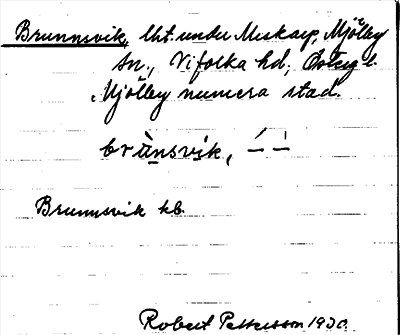 Brunnsvik, lht. under Mickarp, Mjölby
sn., Vifolka hd; Östergl.
Mjölby numera stad.
brùnsvik,
Brunnsvik kb.
Robert Pettersson 1930.